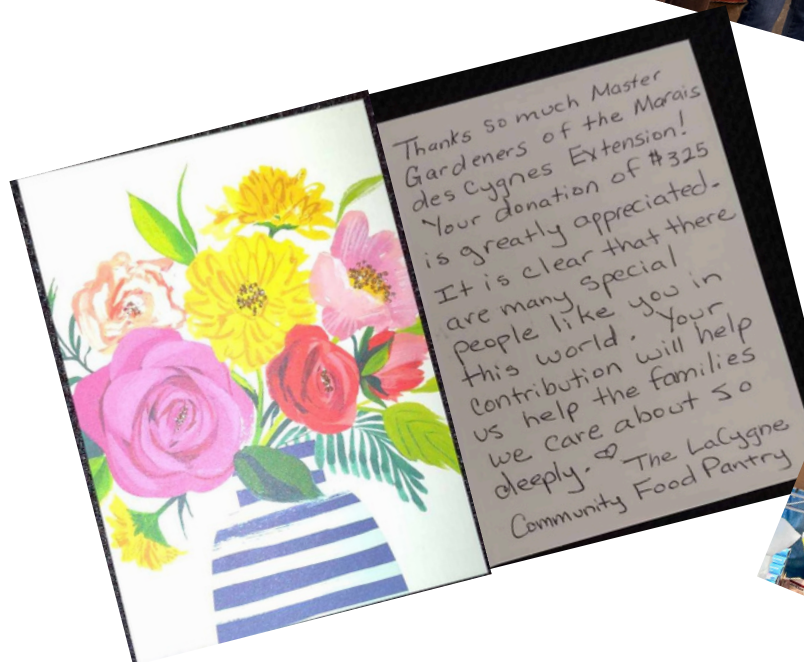 Thanks so much Master
Gardeners of the Marais
des Cygnes Extension!
Your donation of $325
is greatly appreciated.
It is clear that there
are many special
people like you in
this world. Your
contribution will help
us help the families
we care about so
deeply. ♡ The LaCygne
Community Food Pantry